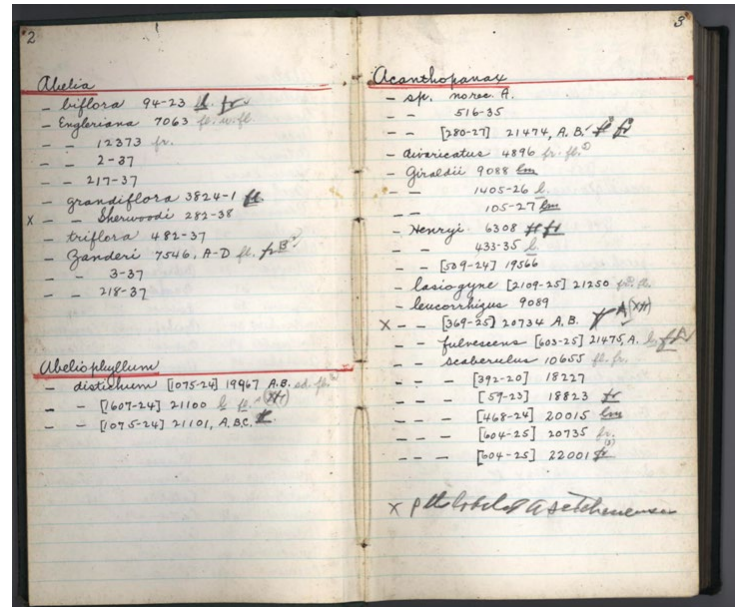 2
Abelia
- biflora 94-23 fl. fr.
- Engleriana 7063 fl. w. fl.
- - 12373 fr.
- - 2-37
- - 217-37
- grandiflora 3824-1 fl.
x - - Sherwoodi 282-38
- triflora 482-37
- Zanderi 7546, A-D fl. fr B
- - 3-37
- - 218-37
Abeliophyllum
- distichum [1075-24] 19967 A.B.
- - [1607-24] 21100 fl.
- - [1075-24] 21101, A.B.C. fl.
3
Acanthopanax
- sp. norec. A.
- - 516-35
- - [280-27] 21474, A, B. fl fr
- divaricatus 4896 fr. fl.
- Giraldii 9088 lm
- - 1405-26 l.
- - 105-27 lm
- Henryi 6308 fl fr
- - 433-35 l
- - [539-24] 19566
- lasiogyne [2109-25] 21250 fr. fl.
- leucorrhizus 9089
x - - [369-25] 20734 A, B. A (XH)
- - fulvescens [603-25] 21475, A.
- - scaberulus 10655 fl. fr.
- - - [392-20] 18227
- - - [59-23] 18823 fr
- - - [468-24] 20015 lm
- - - [604-25] 20735 fr.
- - - [604-25] 22001 fr
x A setchuenensis